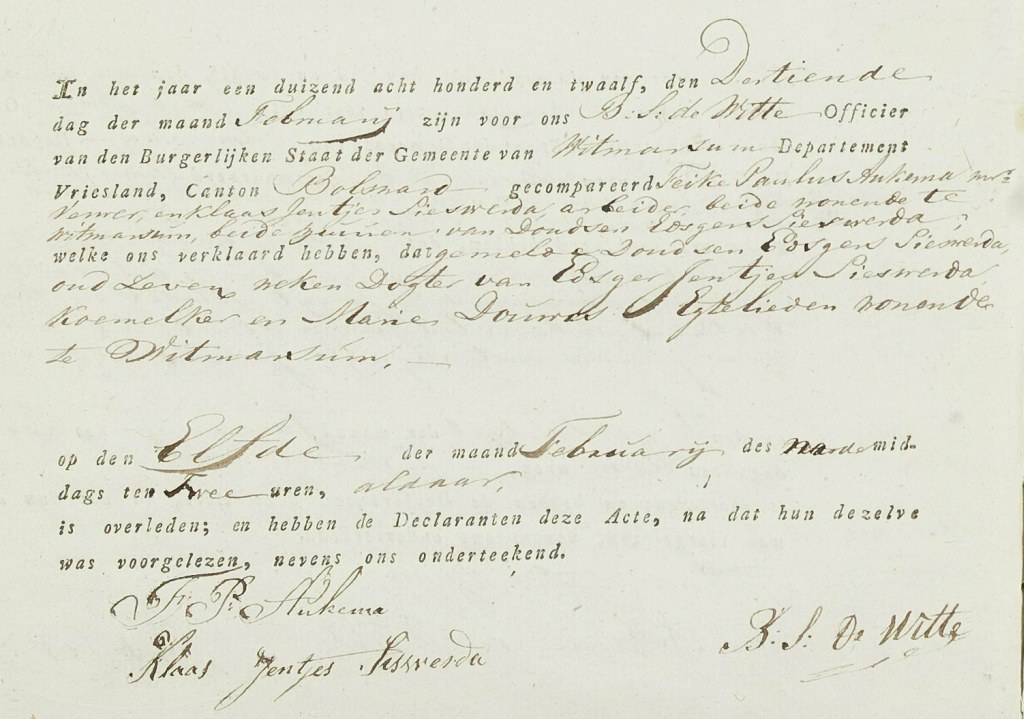 In het jaar een duizend acht honderd en twaalf, den Dertiende
dag der maand Februarij zijn voor ons B: S: de Witte Officier
van den Burgerlijken Staat der Gemeente van Witmarsum Departement
Vriesland, Canton Bolsward gecompareerd Feike Paulus Ankema
Verwer, en Klaas Jentjes Sieswerda, arbeider beide wonende te
Witmarsum, beide van Doudsen Edsgers Sieswerda,
welke ons verklaard hebben, dat gemelde Doudsen Edsgers Sieswerda,
oud Zeven weken Dogter van Edsger Jentjes Sieswerda
Koemelker en Marie Douwes Egtelieden wonende
te Witmarsum,
op den Elfde der maand Februarij des na de mid-
dags ten Twee uren, aldaar,
is overleden; en hebben de Declaranten deze Acte, na dat hun dezelve
was voorgelezen, nevens ons onderteekend.
F: P: Ankema
B: S: De Witte
Klaas Jentjes Siswerda